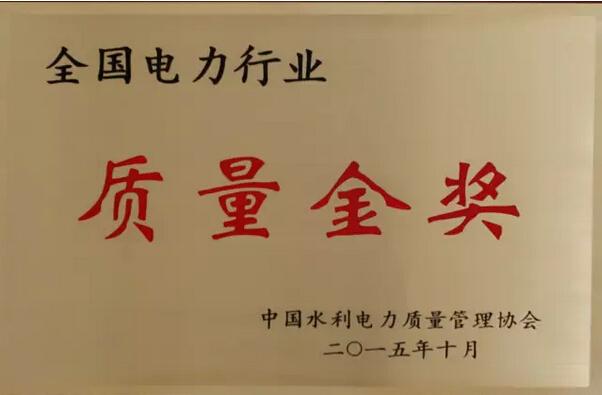 全国电力行业
质量金奖
中国水利电力质量管理协会
二〇一五年十月